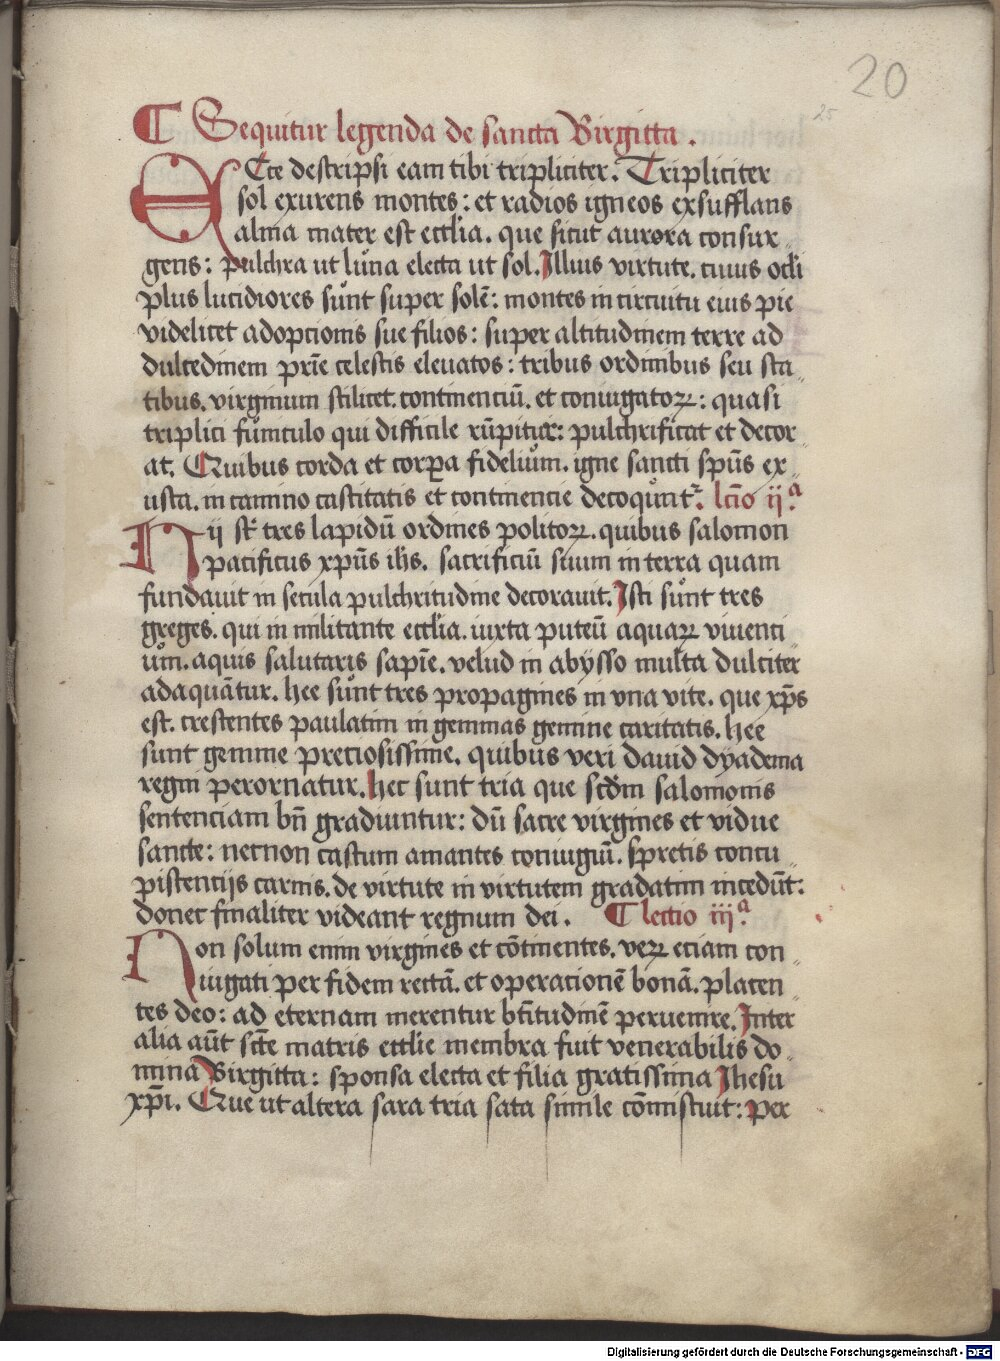 20
25
¶ Sequitur legenda de sancta Birgitta .
ECce descripsi eam tibi tripliciter. Tripliciter
sol exurens montes: et radios igneos exsufflans
alma mater est eccl̄ia. que sicut aurora consur„
gens: pulchra ut luna electa ut sol. Illius virtute. cuius oc̄li
plus lucidiores sunt super solē: montes in circuitu eius pie
videlicet adopcionis sue filios: super altitudinem terre ad
dulcedinem pr̄ie celestis eleuatos: tribus ordinibus seu sta„
tibus. virginum scilicet. continenciū. et coniugatoꝝ: quasi
triplici funiculo qui difficile rūpitur: pulchrificat et decor„
at. Quibus corda et corꝑa fidelium. igne sancti sp̄us ex„
usta. in camino castitatis et continencie decoquūt᷑. lc̄io ijª.
Hij sūt tres lapidū ordines politoꝝ. quibus salomon
pacificus xp̄us ih̄s. sacrificiū suum in terra quam
fundauit in secula pulchritudine decorauit. Isti sunt tres
greges. qui in militante eccl̄ia. iuxta puteū aquaꝝ viuenti„
um. aquis salutaris sapīe. velud in abysso multa dulciter
adaquātur. hee sunt tres propagines in vna vite. que xp̄s
est. crescentes paulatim in gemmas gemine caritatis. hee
sunt gemme preciosissime. quibus veri dauid dyadema
regni perornatur. hec sunt tria que scd̄m salomonis
sentenciam bn̄ gradiuntur: dū sacre virgines et vidue
sancte: necnon castum amantes coniugiū. spretis concu„
piscencijs carnis. de virtute in virtutem gradatim incedūt:
donec finaliter videant regnum dei . ¶ lectio iijª.
Non solum enim virgines et cōtinentes. veꝝ eciam con„
iugati per fidem rectā. et operacionē bonā. placen„
tes deo: ad eternam merentur bt̄itudinē peruenire. Inter
alia aūt sc̄te matris eccl̄ie membra fuit venerabilis do„
mina Birgitta: sponsa electa et filia gratissima Jhesu
xp̄i. Que ut altera sara tria sata simile cōmiscuit: per
Digitalisierung gefördert durch die Deutsche Forschungsgemeinschaft - DFG